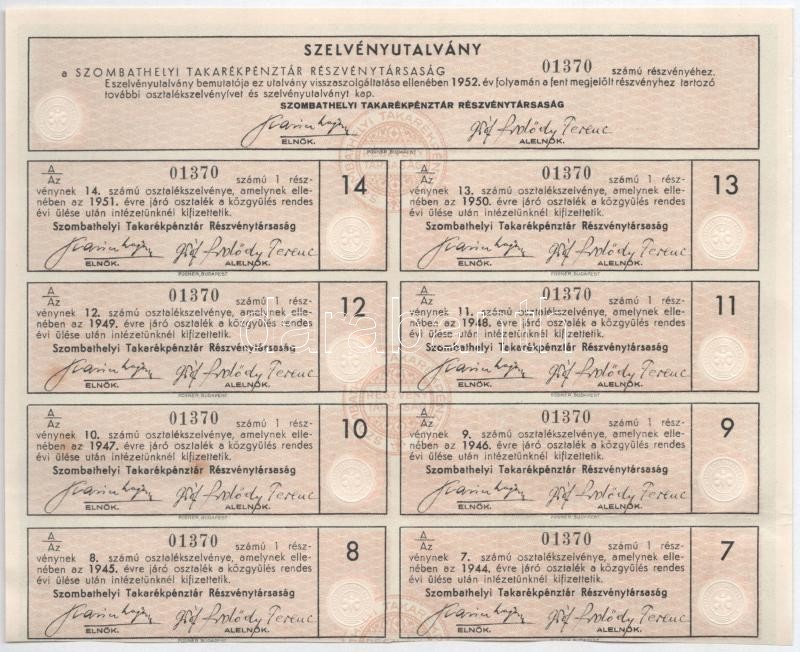 SZELVÉNYUTALVÁNY
a SZOMBATHELYI TAKARÉKPÉNZTÁR RÉSZVÉNYTÁRSASÁG 01370 számú részvényéhez.
E szelvényutalvány bemutatója ez utalvány visszaszolgáltatása ellenében 1952. év folyamán a fent megjelölt részvényhez tartozó
további osztalékszelvényívet és szelvényutalványt kap.
SZOMBATHELYI TAKARÉKPÉNZTÁR RÉSZVÉNYTÁRSASÁG
Gróf Erdődy Ferenc
ELNÖK. ALELNÖK.
POSNER, BUDAPEST
A/Az 01370 számú 1 rész- 14
vénynek 14. számú osztalékszelvénye, amelynek elle-
nében az 1951. évre járó osztalék a közgyűlés rendes
évi ülése után intézetünknél kifizettetik.
Szombathelyi Takarékpénztár Részvénytársaság
Gróf Erdődy Ferenc
ELNÖK. ALELNÖK.
POSNER, BUDAPEST
A/Az 01370 számú 1 rész- 13
vénynek 13. számú osztalékszelvénye, amelynek elle-
nében az 1950. évre járó osztalék a közgyűlés rendes
évi ülése után intézetünknél kifizettetik.
Szombathelyi Takarékpénztár Részvénytársaság
Gróf Erdődy Ferenc
ELNÖK. ALELNÖK.
POSNER, BUDAPEST
A/Az 01370 számú 1 rész- 12
vénynek 12. számú osztalékszelvénye, amelynek elle-
nében az 1949. évre járó osztalék a közgyűlés rendes
évi ülése után intézetünknél kifizettetik.
Szombathelyi Takarékpénztár Részvénytársaság
Gróf Erdődy Ferenc
ELNÖK. ALELNÖK.
POSNER, BUDAPEST
A/Az 01370 számú 1 rész- 11
vénynek 11. számú osztalékszelvénye, amelynek elle-
nében az 1948. évre járó osztalék a közgyűlés rendes
évi ülése után intézetünknél kifizettetik.
Szombathelyi Takarékpénztár Részvénytársaság
Gróf Erdődy Ferenc
ELNÖK. ALELNÖK.
POSNER, BUDAPEST
A/Az 01370 számú 1 rész- 10
vénynek 10. számú osztalékszelvénye, amelynek elle-
nében az 1947. évre járó osztalék a közgyűlés rendes
évi ülése után intézetünknél kifizettetik.
Szombathelyi Takarékpénztár Részvénytársaság
Gróf Erdődy Ferenc
ELNÖK. ALELNÖK.
POSNER, BUDAPEST
A/Az 01370 számú 1 rész- 9
vénynek 9. számú osztalékszelvénye, amelynek elle-
nében az 1946. évre járó osztalék a közgyűlés rendes
évi ülése után intézetünknél kifizettetik.
Szombathelyi Takarékpénztár Részvénytársaság
Gróf Erdődy Ferenc
ELNÖK. ALELNÖK.
POSNER, BUDAPEST
A/Az 01370 számú 1 rész- 8
vénynek 8. számú osztalékszelvénye, amelynek elle-
nében az 1945. évre járó osztalék a közgyűlés rendes
évi ülése után intézetünknél kifizettetik.
Szombathelyi Takarékpénztár Részvénytársaság
Gróf Erdődy Ferenc
ELNÖK. ALELNÖK.
POSNER, BUDAPEST
A/Az 01370 számú 1 rész- 7
vénynek 7. számú osztalékszelvénye, amelynek elle-
nében az 1944. évre járó osztalék a közgyűlés rendes
évi ülése után intézetünknél kifizettetik.
Szombathelyi Takarékpénztár Részvénytársaság
Gróf Erdődy Ferenc
ELNÖK. ALELNÖK.
POSNER, BUDAPEST